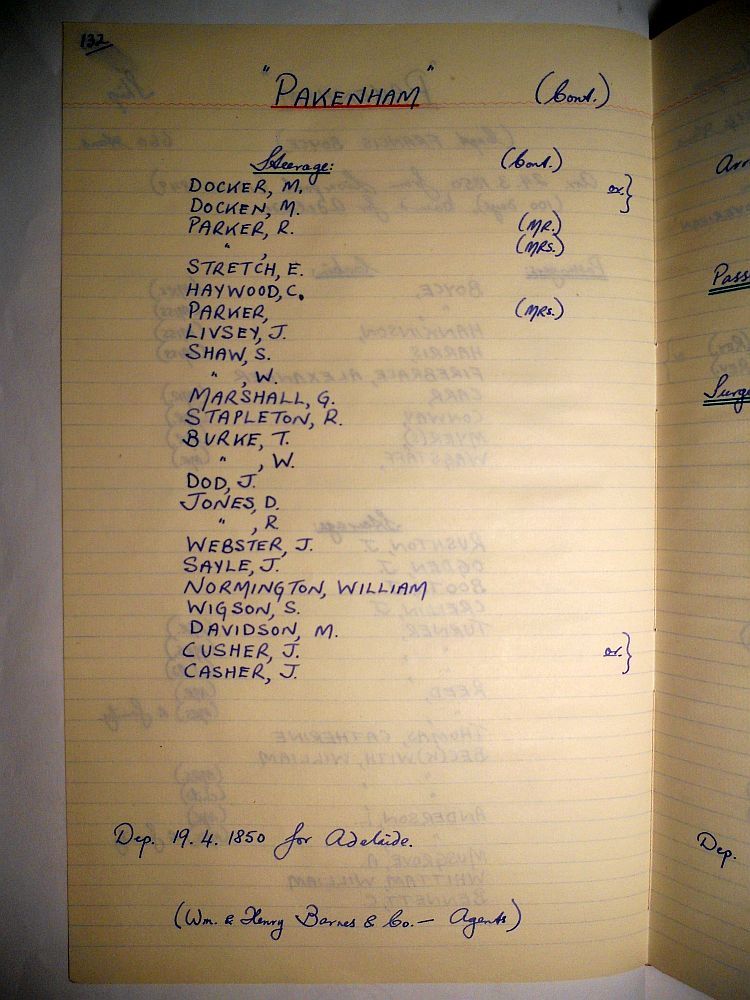 132
"PAKENHAM" (Cont.)
Steerage: (Cont.)
DOCKER, M. or. }
DOCKEN, M.
PARKER, R. (MR.)
" , (MRS.)
STRETCH, E.
HAYWOOD, C.
PARKER, (MRS.)
LIVSEY, J.
SHAW, S.
" , W.
MARSHALL, G.
STAPLETON, R.
BURKE, T.
" , W.
DOD, J.
JONES, D.
" , R.
WEBSTER, J.
SAYLE, J.
NORMINGTON, WILLIAM
WIGSON, S.
DAVIDSON, M.
CUSHER, J. or. }
CASHER, J.
Dep. 19. 4. 1850 for Adelaide.
(Wm. & Henry Barnes & Co. — Agents)
Arr
Pass
Surg
Dep.